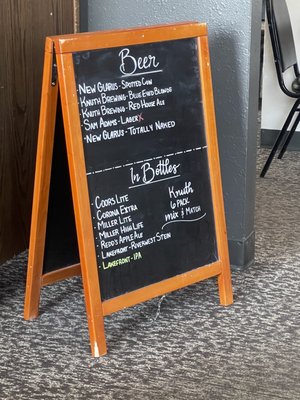 Beer
- New Glarus - Spotted Cow
- Knuth Brewing - Blue Eyed Blonde
- Knuth Brewing - Red House Ale
- Sam Adams - Lager X
- New Glarus - Totally Naked
In Bottles
- Coors Lite
- Corona Extra
- Miller Lite
- Miller High Life
- Redd's Apple Ale
- Lakefront - Riverwest Stein
- Lakefront - IPA
Knuth
6 Pack
mix & Match